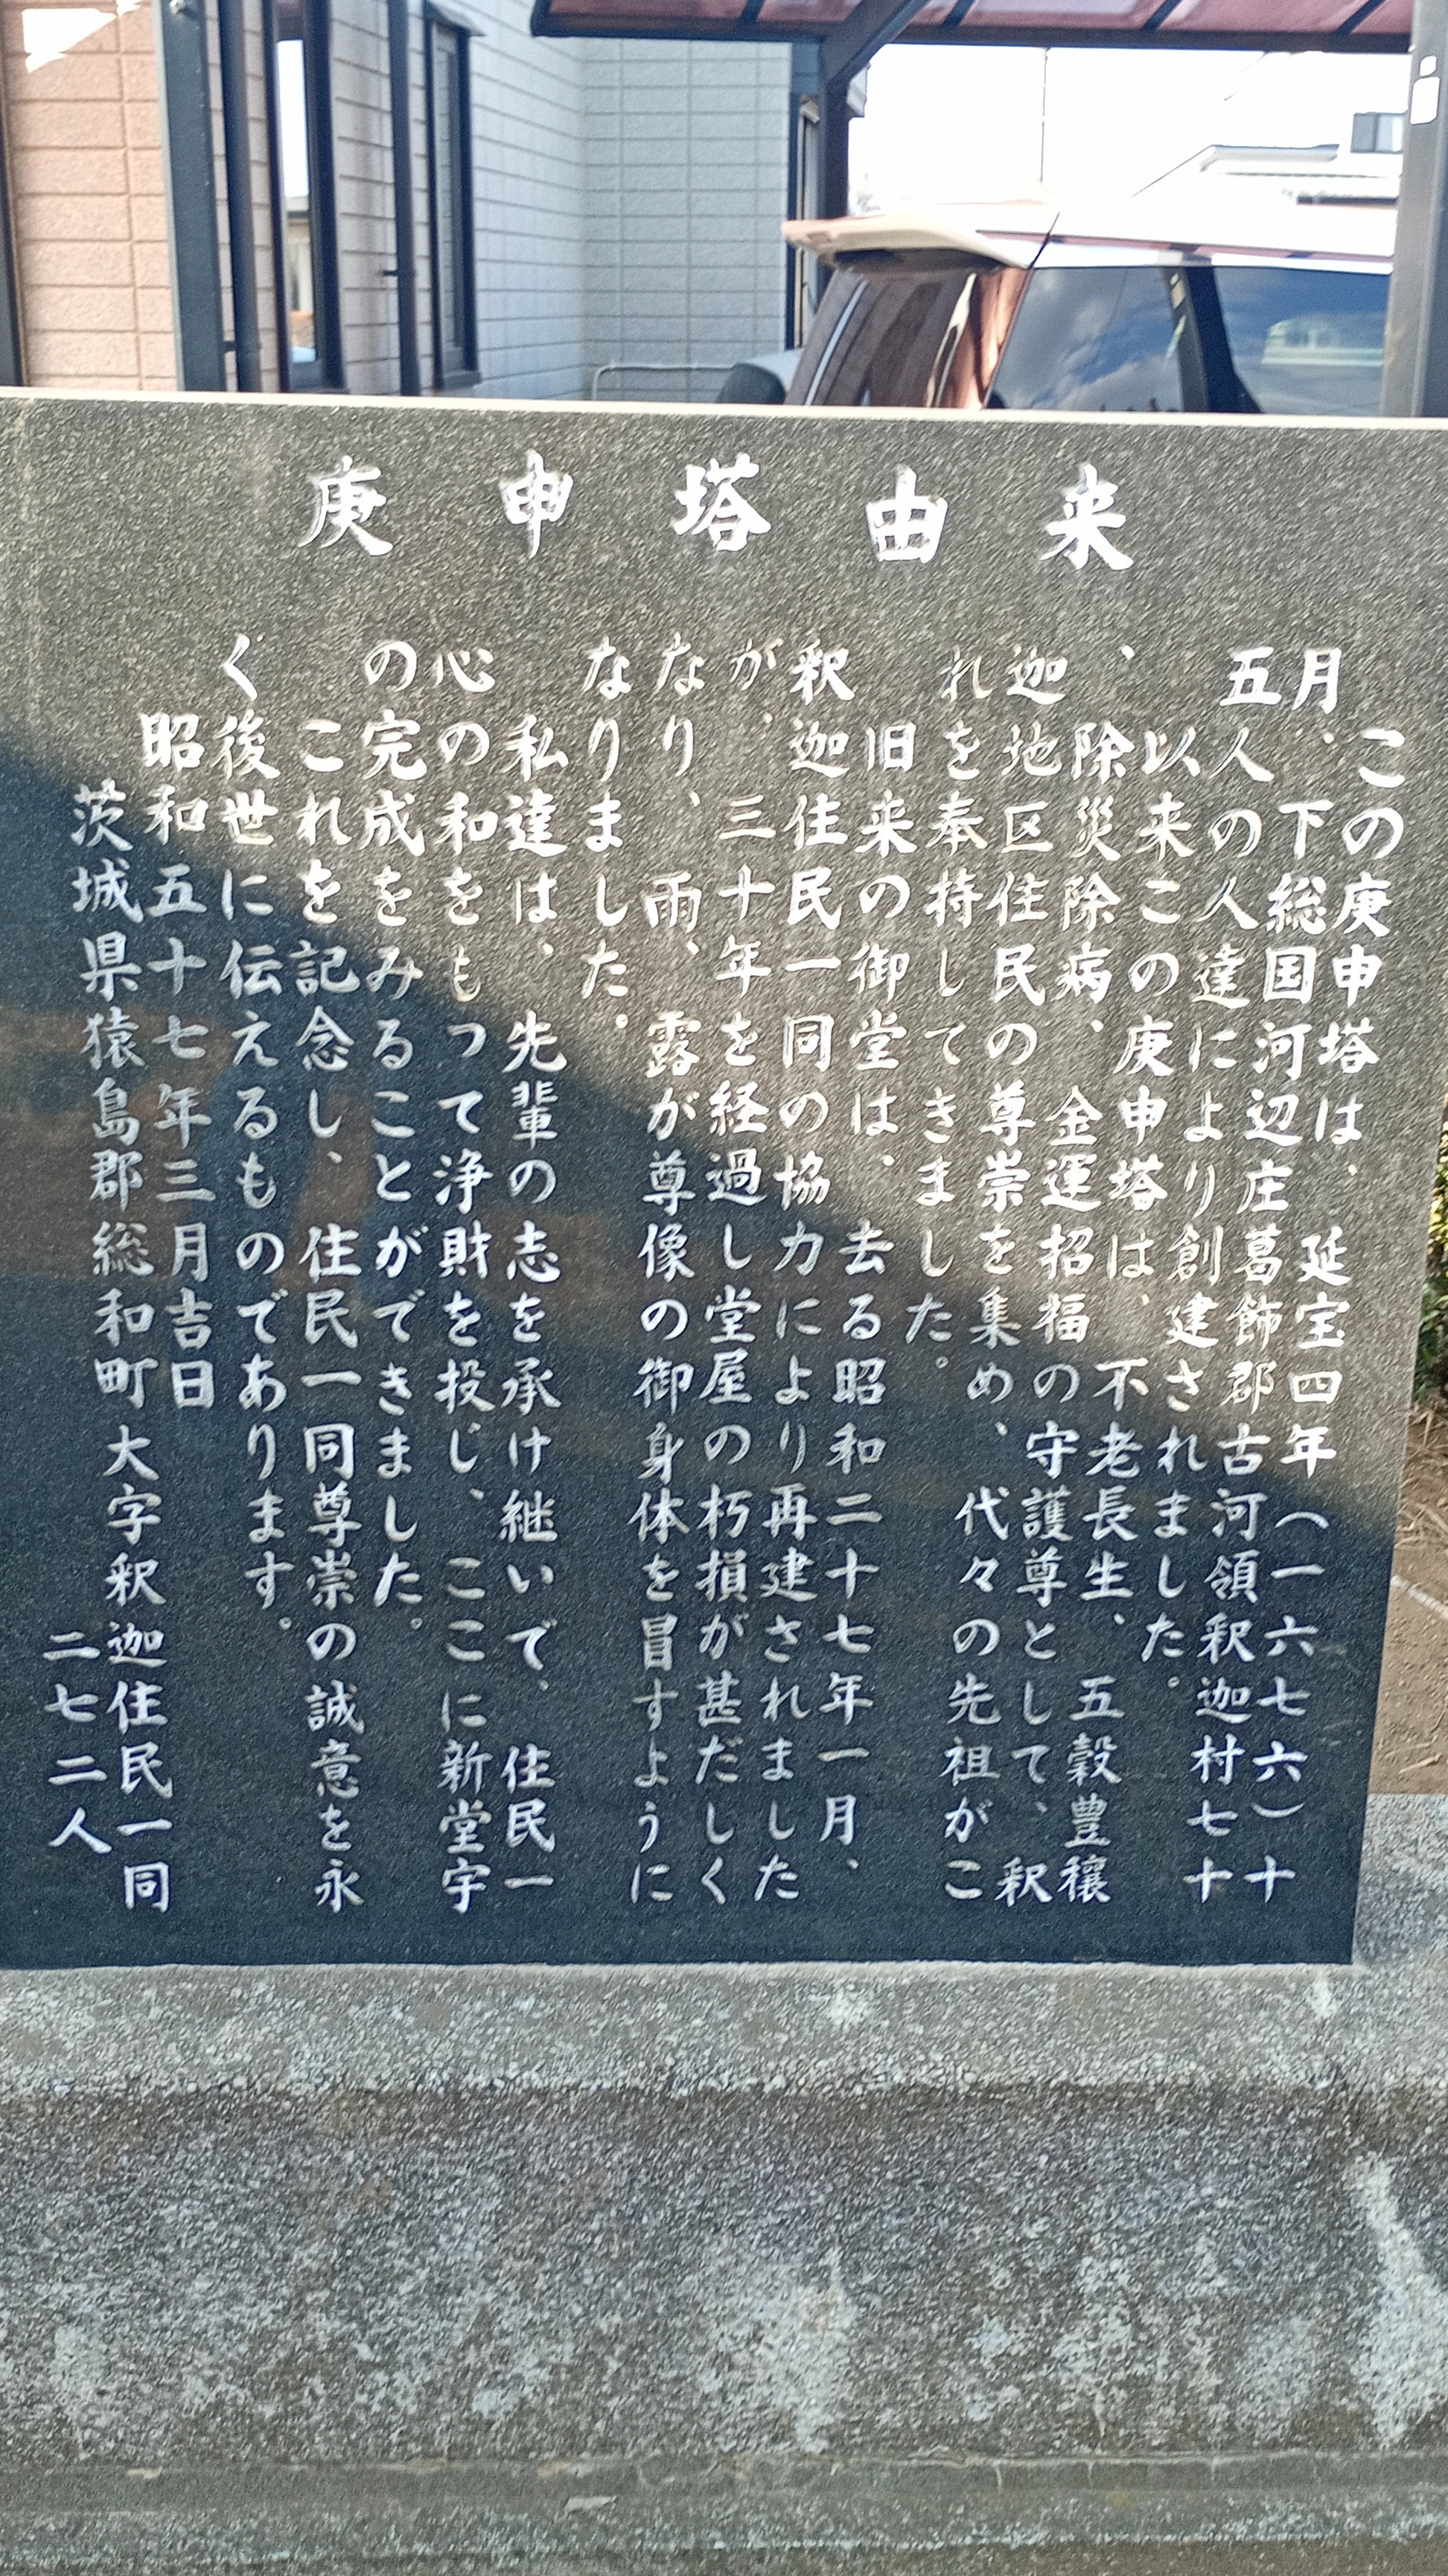 庚申塔由来
この庚申塔は、延宝四年(一六七六)十
月、下総国河辺庄葛飾郡古河領釈迦村七十
五人の人達により創建されました。
以来この庚申塔は、不老長生、五穀豊穣
、除災除病、金運招福の守護尊として、釈
迦地区住民の尊崇を集め、代々の先祖がこ
れを奉持してきました。
旧来の御堂は、去る昭和二十七年一月、
釈迦住民一同の協力により再建されました
が、三十年を経過し堂屋の朽損が甚だしく
なり、雨、露が尊像の御身体を冒すように
なりました。
私達は、先輩の志を承け継いで、住民一
心の和をもって浄財を投じ、ここに新堂宇
の完成をみることができました。
これを記念し、住民一同尊崇の誠意を永
く後世に伝えるものであります。
昭和五十七年三月吉日
茨城県猿島郡総和町大字釈迦住民一同
二七二人